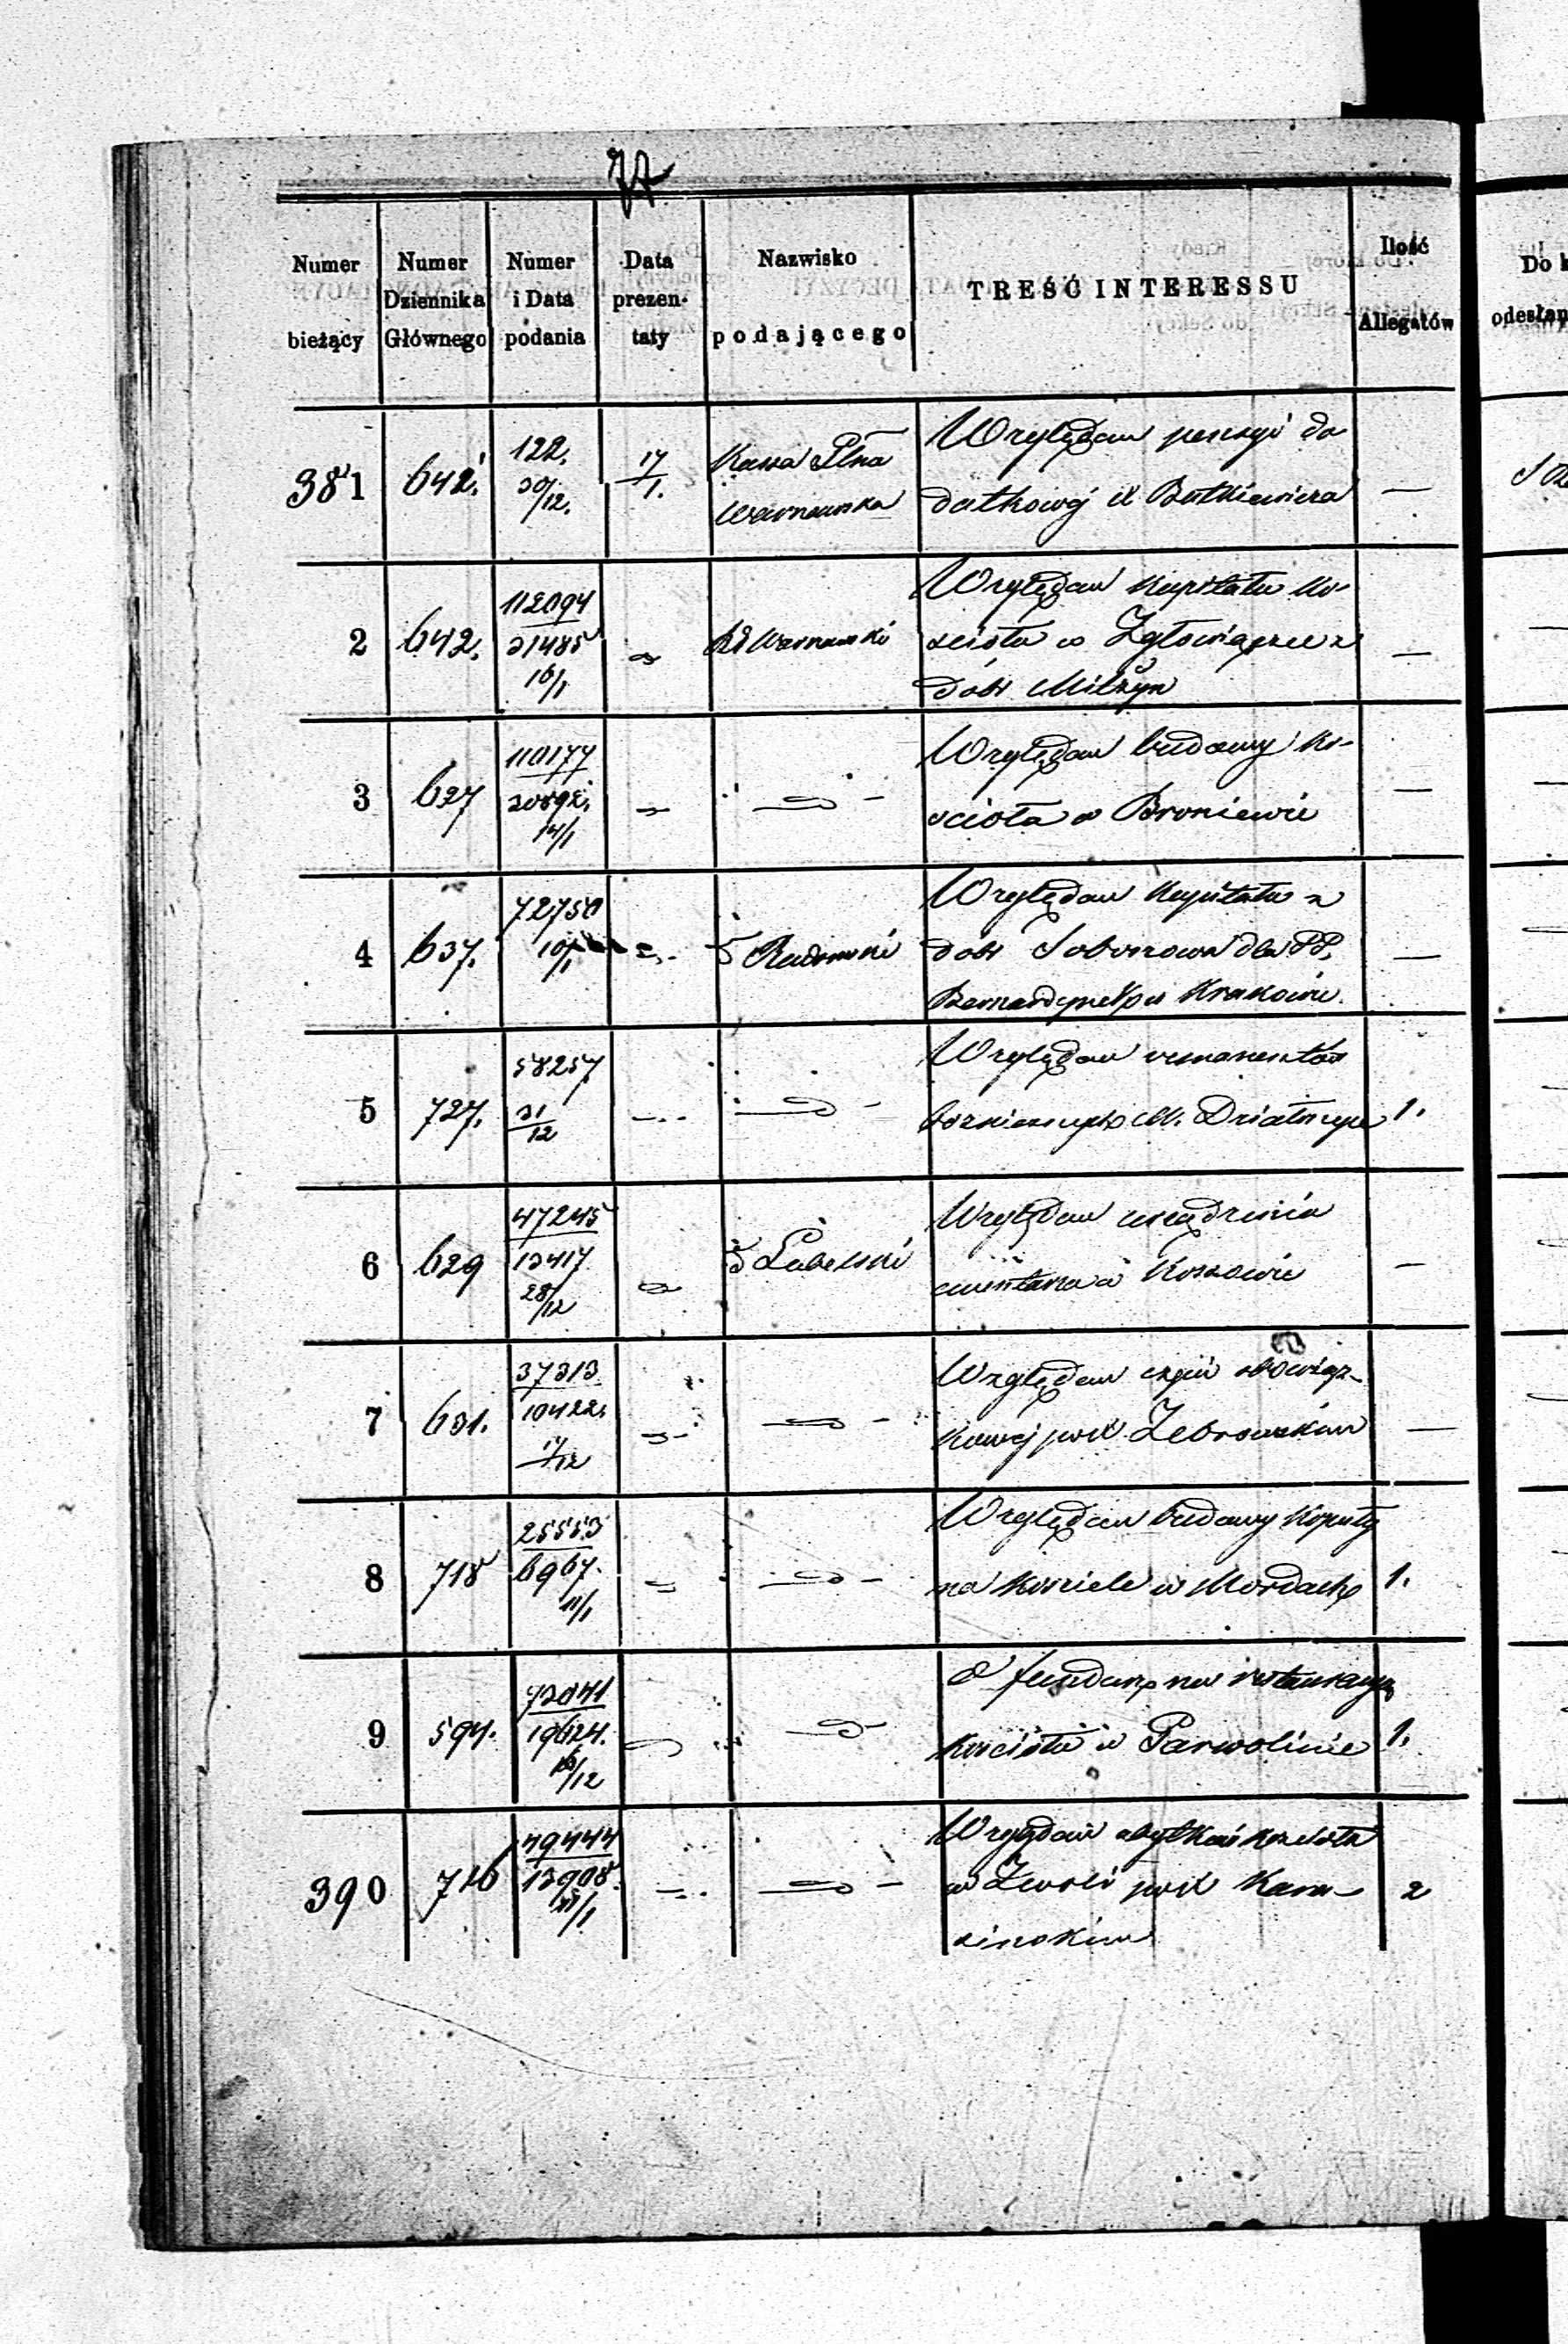 77
Numer bieżący
Numer Dziennika Głównego
Numer i Data podania
Data prezen- taty
Nazwisko podającego
TREŚĆ INTERESSU
Ilość Allegatów
Do k
odesłan
381 642. 122. 30/12. 17/1. Kassa Płna Warszawska Względem pensyi do
datkowej X Butkiewicza —
2 642. 112094 31485 16/1 Warszawski Względem Kapitału Ko-
ścioła w Zgłowiączce z
dóbr Milżyn —
3 627 110177 30892. 14/1 Względem budowy Ko-
ścioła w Broniewie —
4 637. 72750 10/1 Radomski Względem Kapitału z
dóbr Soboszowa dla PP.
Bernardynek w Krakowie. —
5 727. 58257 31/12 Względem remanentów
M. Działoszyce 1.
6 629 47245 13417 28/12 Lubelski Względem urządzenia
cmentarza w Kossowie —
7 631. 37313 10422. 17/12 Względem czyn obowiąz-
kowej przez X Zebrowskim —
8 718 25553 6967. 11/1 Względem budowy Kopuły
na Kościele w Mordach 1.
9 594. 73041 19624. 16/12 O fundusz na restauracyą
kościoła w Parwolinie 1.
390 716 49444 13908. /1 Względem kościoła
w Zwoli przez X Kam-
sinskim 2